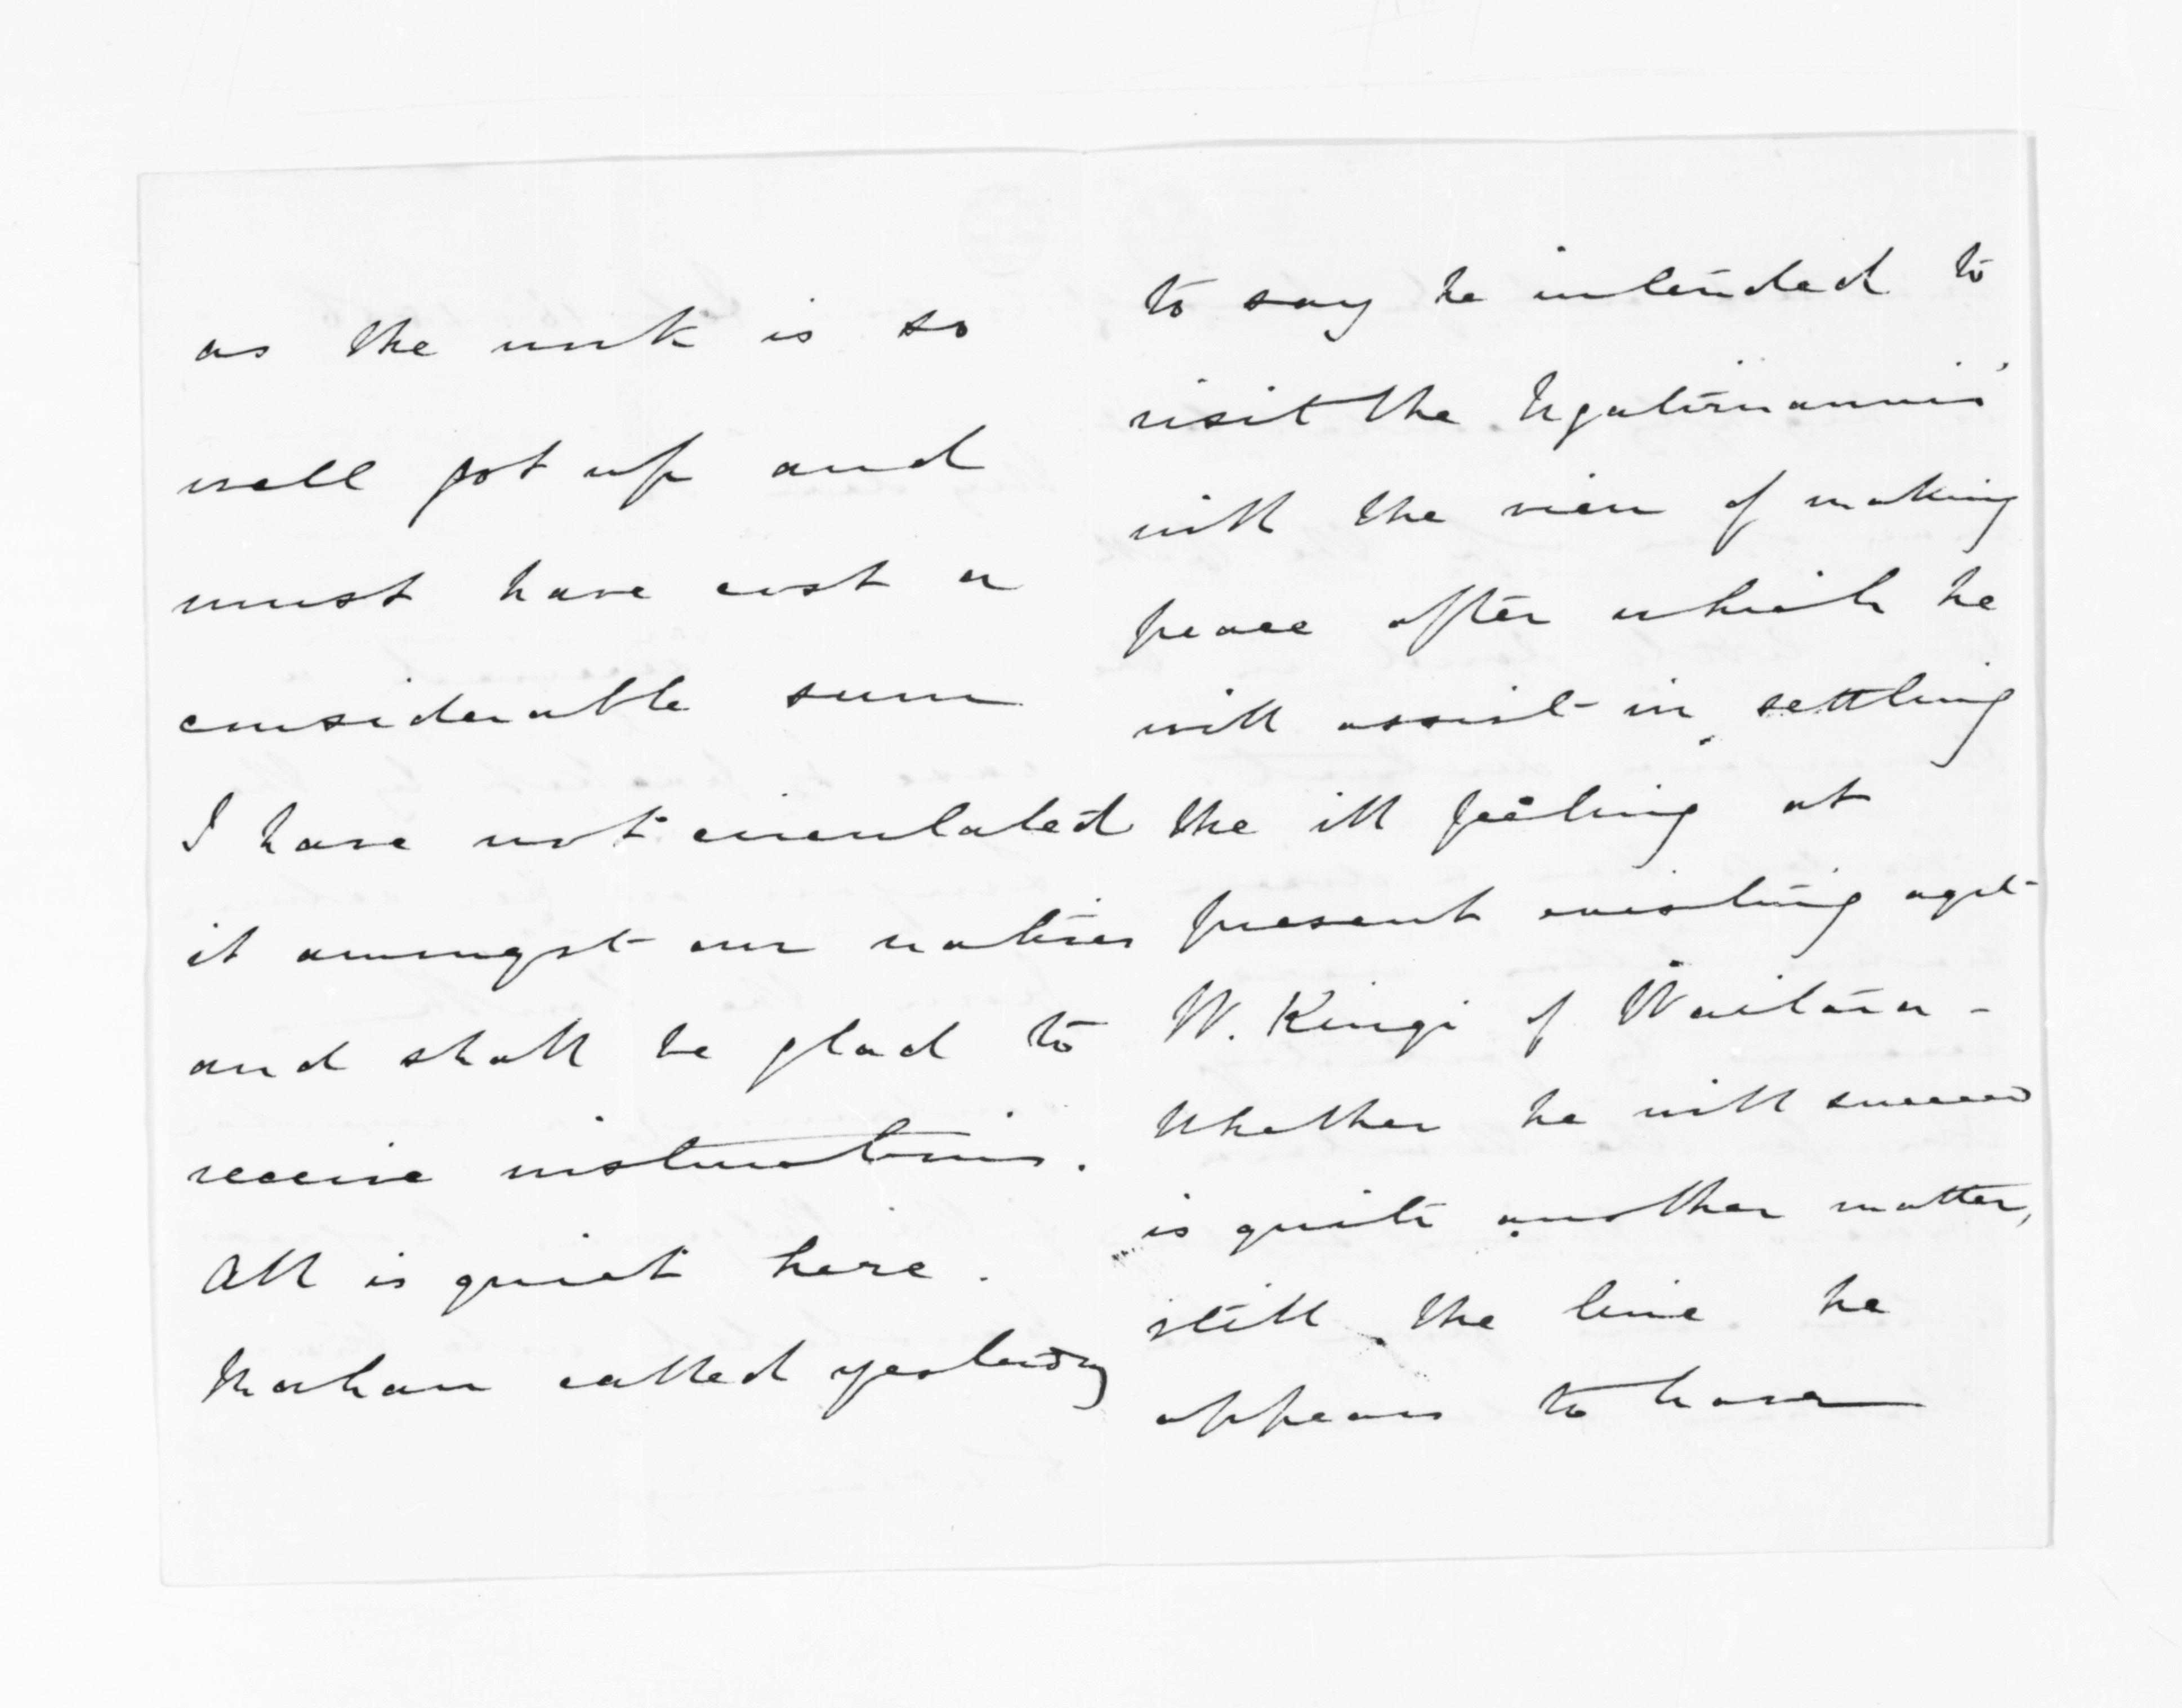 as the work is so
well got up and
must have cost a
considerable sum
I have not circulated
it amongst our natives
and shall be glad to
receive instructions.
All is quiet here.
called yesterday
to say he intended to
visit the Ngatiruanuis'
with the view of making
peace after which he
will assist in settling
the ill feeling at
present existing agst
W. Kingi of Waitara -
Whether he will succeed
is quite another matter,
still the line he
appears to have